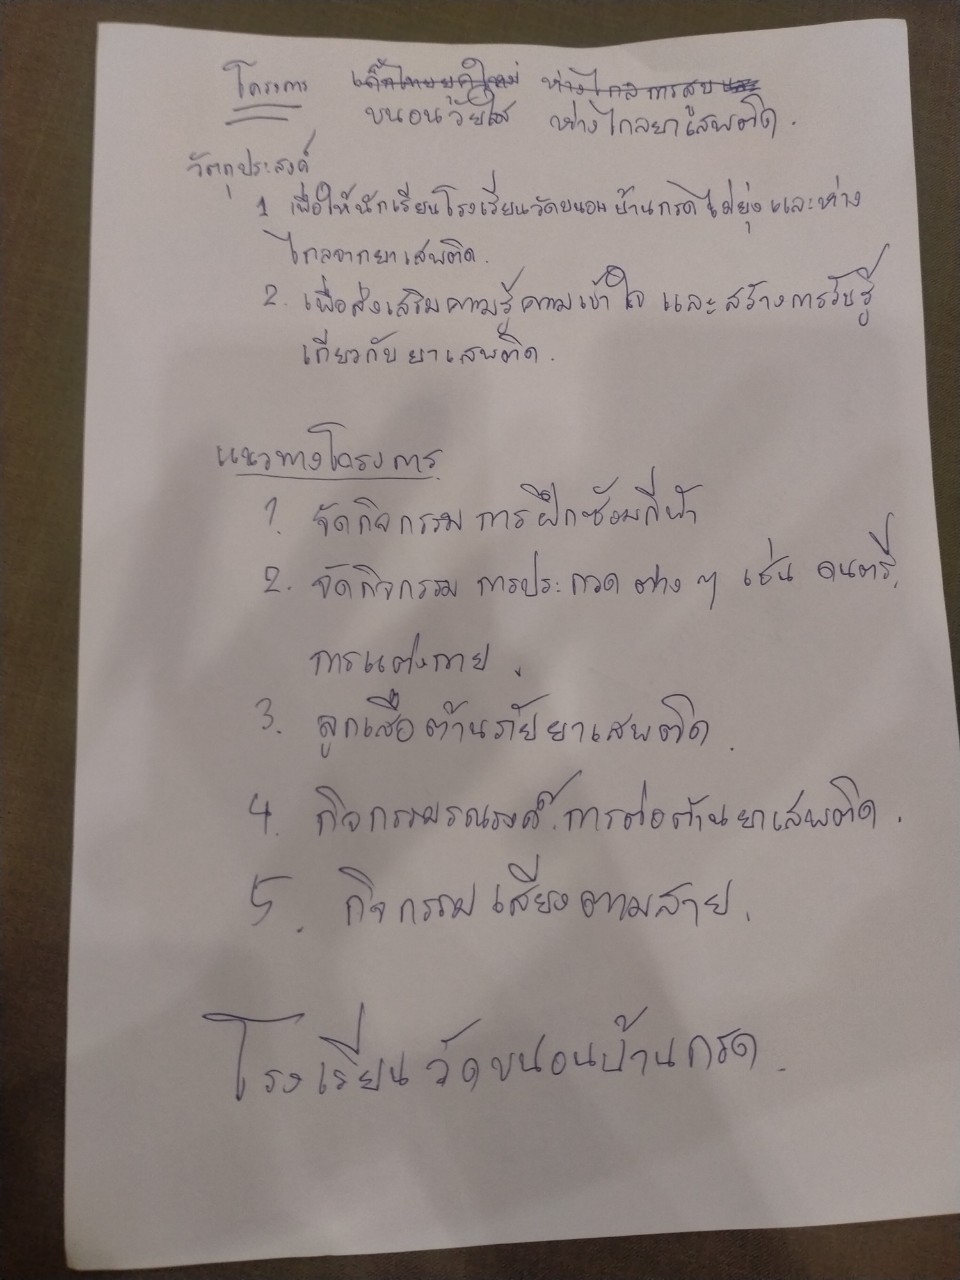 โครงการ เด็กไทยยุคใหม่ ห่างไกลการสูบ
ขนอนวัยใส ห่างไกลยาเสพติด.
วัตถุประสงค์
1 เพื่อให้นักเรียนโรงเรียนวัดขนอนบ้านกรดไม่ยุ่งและห่าง
ไกลจากยาเสพติด.
2. เพื่อส่งเสริมความรู้ความเข้าใจ และสร้างการรับรู้
เกี่ยวกับยาเสพติด.
แนวทางโครงการ
1. จัดกิจกรรมการฝึกซ้อมกีฬา
2. จัดกิจกรรมการประกวดต่างๆ เช่น ดนตรี,
การแต่งกาย.
3. ลูกเสือต้านภัยยาเสพติด.
4. กิจกรรมรณรงค์การต่อต้านยาเสพติด.
5. กิจกรรมเสียงตามสาย.
โรงเรียนวัดขนอนบ้านกรด.